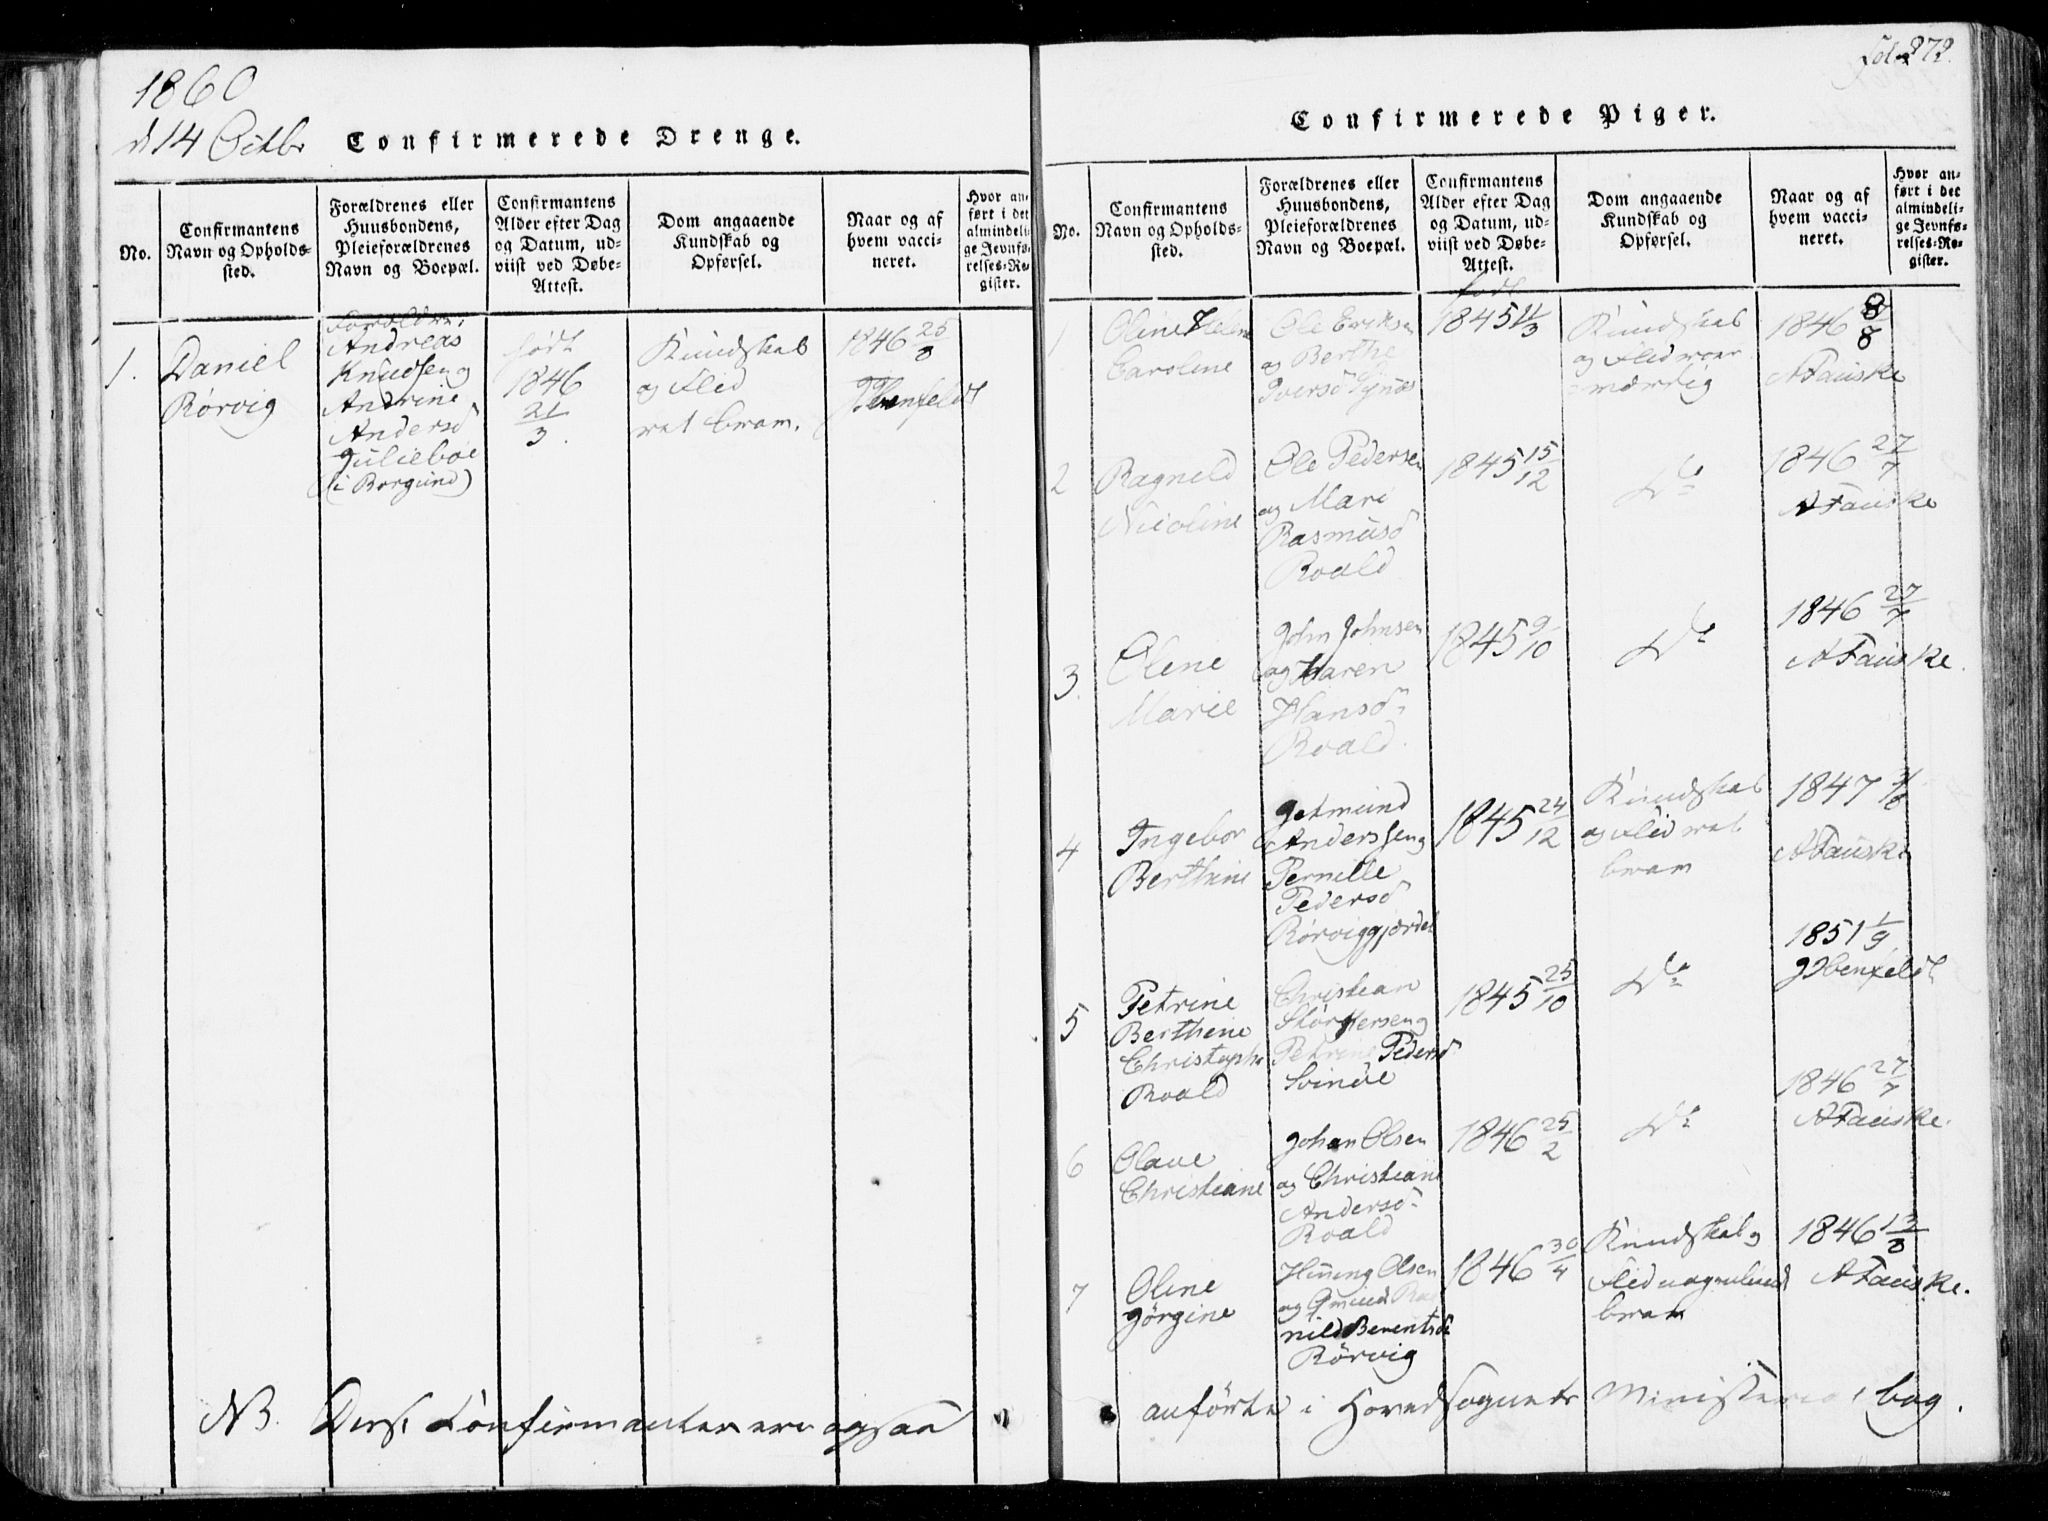 1860
d 14 Octbr
Confirmerede Drenge.
No.
Confirmantens
Navn og Opholds-
sted.
Forældrenes eller
Huusbondens,
Pleieforældrenes
Navn og Boepæl.
Confirmantens
Alder efter Dag
og Datum, ud-
viist ved Døbe-
Attest.
Dom angaaende
Kundskab og
Opførsel.
Naar og af
hvem vacci-
neret.
Hvor an-
ført i det
almindeli-
ge Jevnfø-
relses-Re-
gister.
1.
Daniel
Rørvig
Forældre:
Andreas
Knudsen og
Andrine
Andersd
Juliebøe
(i Borgund)
født
1846
21/3.
Kundskab
og Flid
vel bram.
1846 25/8
J Ibenfeldt
NB. Disse Confirmanter ere ogsaa
fol. 272.
Confirmerede Piger.
No.
Confirmantens
Navn og Opholds-
sted.
Forældrenes eller
Huusbondens,
Pleieforældrenes
Navn og Boepæl.
Confirmantens
Alder efter Dag
og Datum, ud-
viist ved Døbe-
Attest.
Dom angaaende
Kundskab og
Opførsel.
Naar og af
hvem vacci-
neret.
Hvor an-
ført i det
almindeli-
ge Jevnfø-
relses-Re-
gister.
1
Oline Helene
Caroline
Ole Eriksen
og Berthe
Iversd Synæs
født
1845 11/3
Kundskab
og Flid
mærdig
1846 8/8
A Fauske
2
Ragneld
Nicoline
Ole Pedersen
og Mari
Rasmusd
Roald
1845 15/12
Do
1846 27/7
A Fauske
3.
Olene
Marie
John Johnsen
og Karen
Hansd
Roald
1845 9/10
Do
1846 27/7
A Fauske.
4
Ingebor
Berthine
Getmund
Anderssen og
Pernille
Pedersd
Rørviggjærdet
1845 24/12
Kundskab
og Flid vel
bram
1847
A Fauske
5
Petrine
Berthine
Christophe
Roald
Christian
Størkersen og
Petrine Pedersd
Svinöe
1845 25/10
Do
1851 1/9
J Ibenfeldt
6
Olave
Christiane
Johan Olsen
og Christiane
Andersd
Roald
1846 25/2
Do
1846 27/7
A Fauske.
7
Oline
Jørgine
Henning Olsen
og Gmund Rag
nild Berentsd
Rørvig
1846 30/4
Kundskab og
Flid
bram
1846 13/8
A Fauske.
anførte i Hovedsognets Ministerial bog.